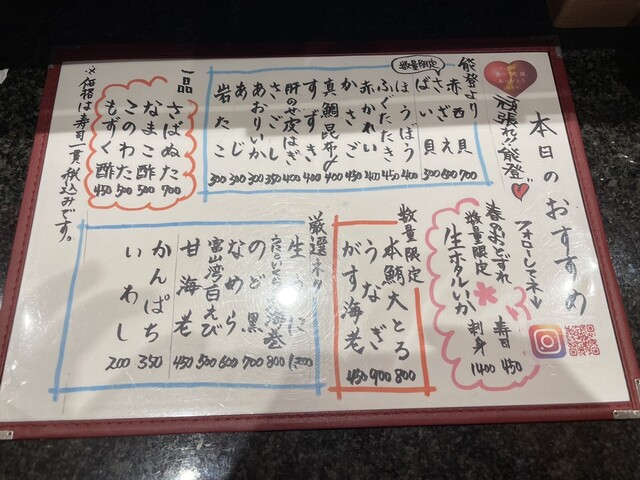 本日のおすすめ
フォローしてネ↓
頑張れ!!能登
春のおとずれ
数量限定
生ホタルいか
寿司 450
刺身 1400
能登より
赤西貝 700
さざえ 600
数量限定
ばい貝 500
ほうぼう 400
ふぐたたき 450
赤かれい 400
かさご 450
真鯛昆布〆 400
すずき 400
肝のせ皮はぎ 400
さごし 350
あおりいか 300
あじ 300
岩たこ 300
一品
さばぬた 700
なまこ酢 500
このわた 500
もずく酢 450
※価格は寿司一貫税込みです。
数量限定
本鮪大とろ 800
うなぎ 900
がす海老 450
厳選ネタ
生うに 1,200
海苔 800
のど黒 700
なめら 600
富山湾白えび 500
甘海老 450
かんぱち 350
いわし 200